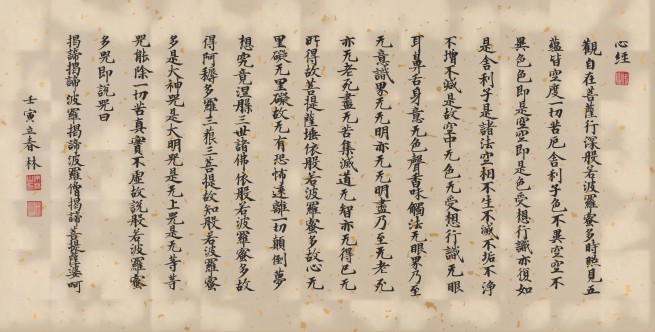 心経
觀自在菩薩行深般若波羅蜜多時照見五
蘊皆空度一切苦厄舍利子色不異空空不
異色色即是空空即是色受想行識亦復如
是舍利子是諸法空相不生不滅不垢不淨
不增不減是故空中无色无受想行識无眼
耳鼻舌身意无色聲香味觸法无眼界乃至
无意識界无无明亦无无明盡乃至无老死
亦无老死盡无苦集滅道无智亦无得已无
所得故菩提薩埵依般若波羅蜜多故心无
罣礙无罣礙故无有恐怖遠離一切顛倒夢
想究竟涅槃三世諸佛依般若波羅蜜多故
得阿耨多羅三藐三菩提故知般若波羅蜜
多是大神咒是大明咒是无上咒是无等等
咒能除一切苦真實不虛故說般若波羅蜜
多咒即說咒曰
揭諦揭諦 波羅揭諦 波羅僧揭諦 菩提薩婆呵
壬寅立春 林